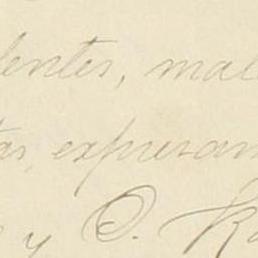 dentes, mal
tas, expresam
e y O. Ra